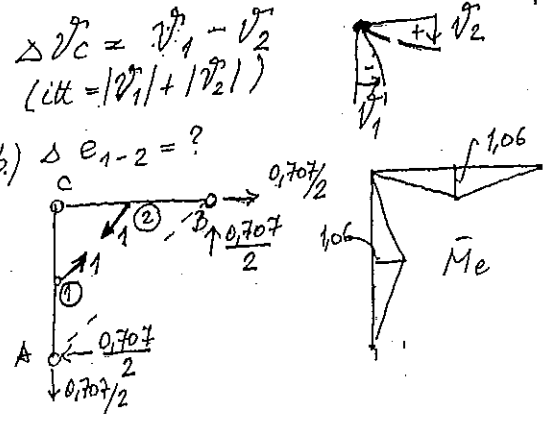 Δϑc = ϑ1 - ϑ2
(itt = |ϑ1| + |ϑ2|)
+
ϑ2
-
ϑ1
b.) Δ e1-2 = ?
C
②
1
B
0,707/2
0,707/2
1
①
A
0,707/2
0,707/2
1,06
1,06
M̄e